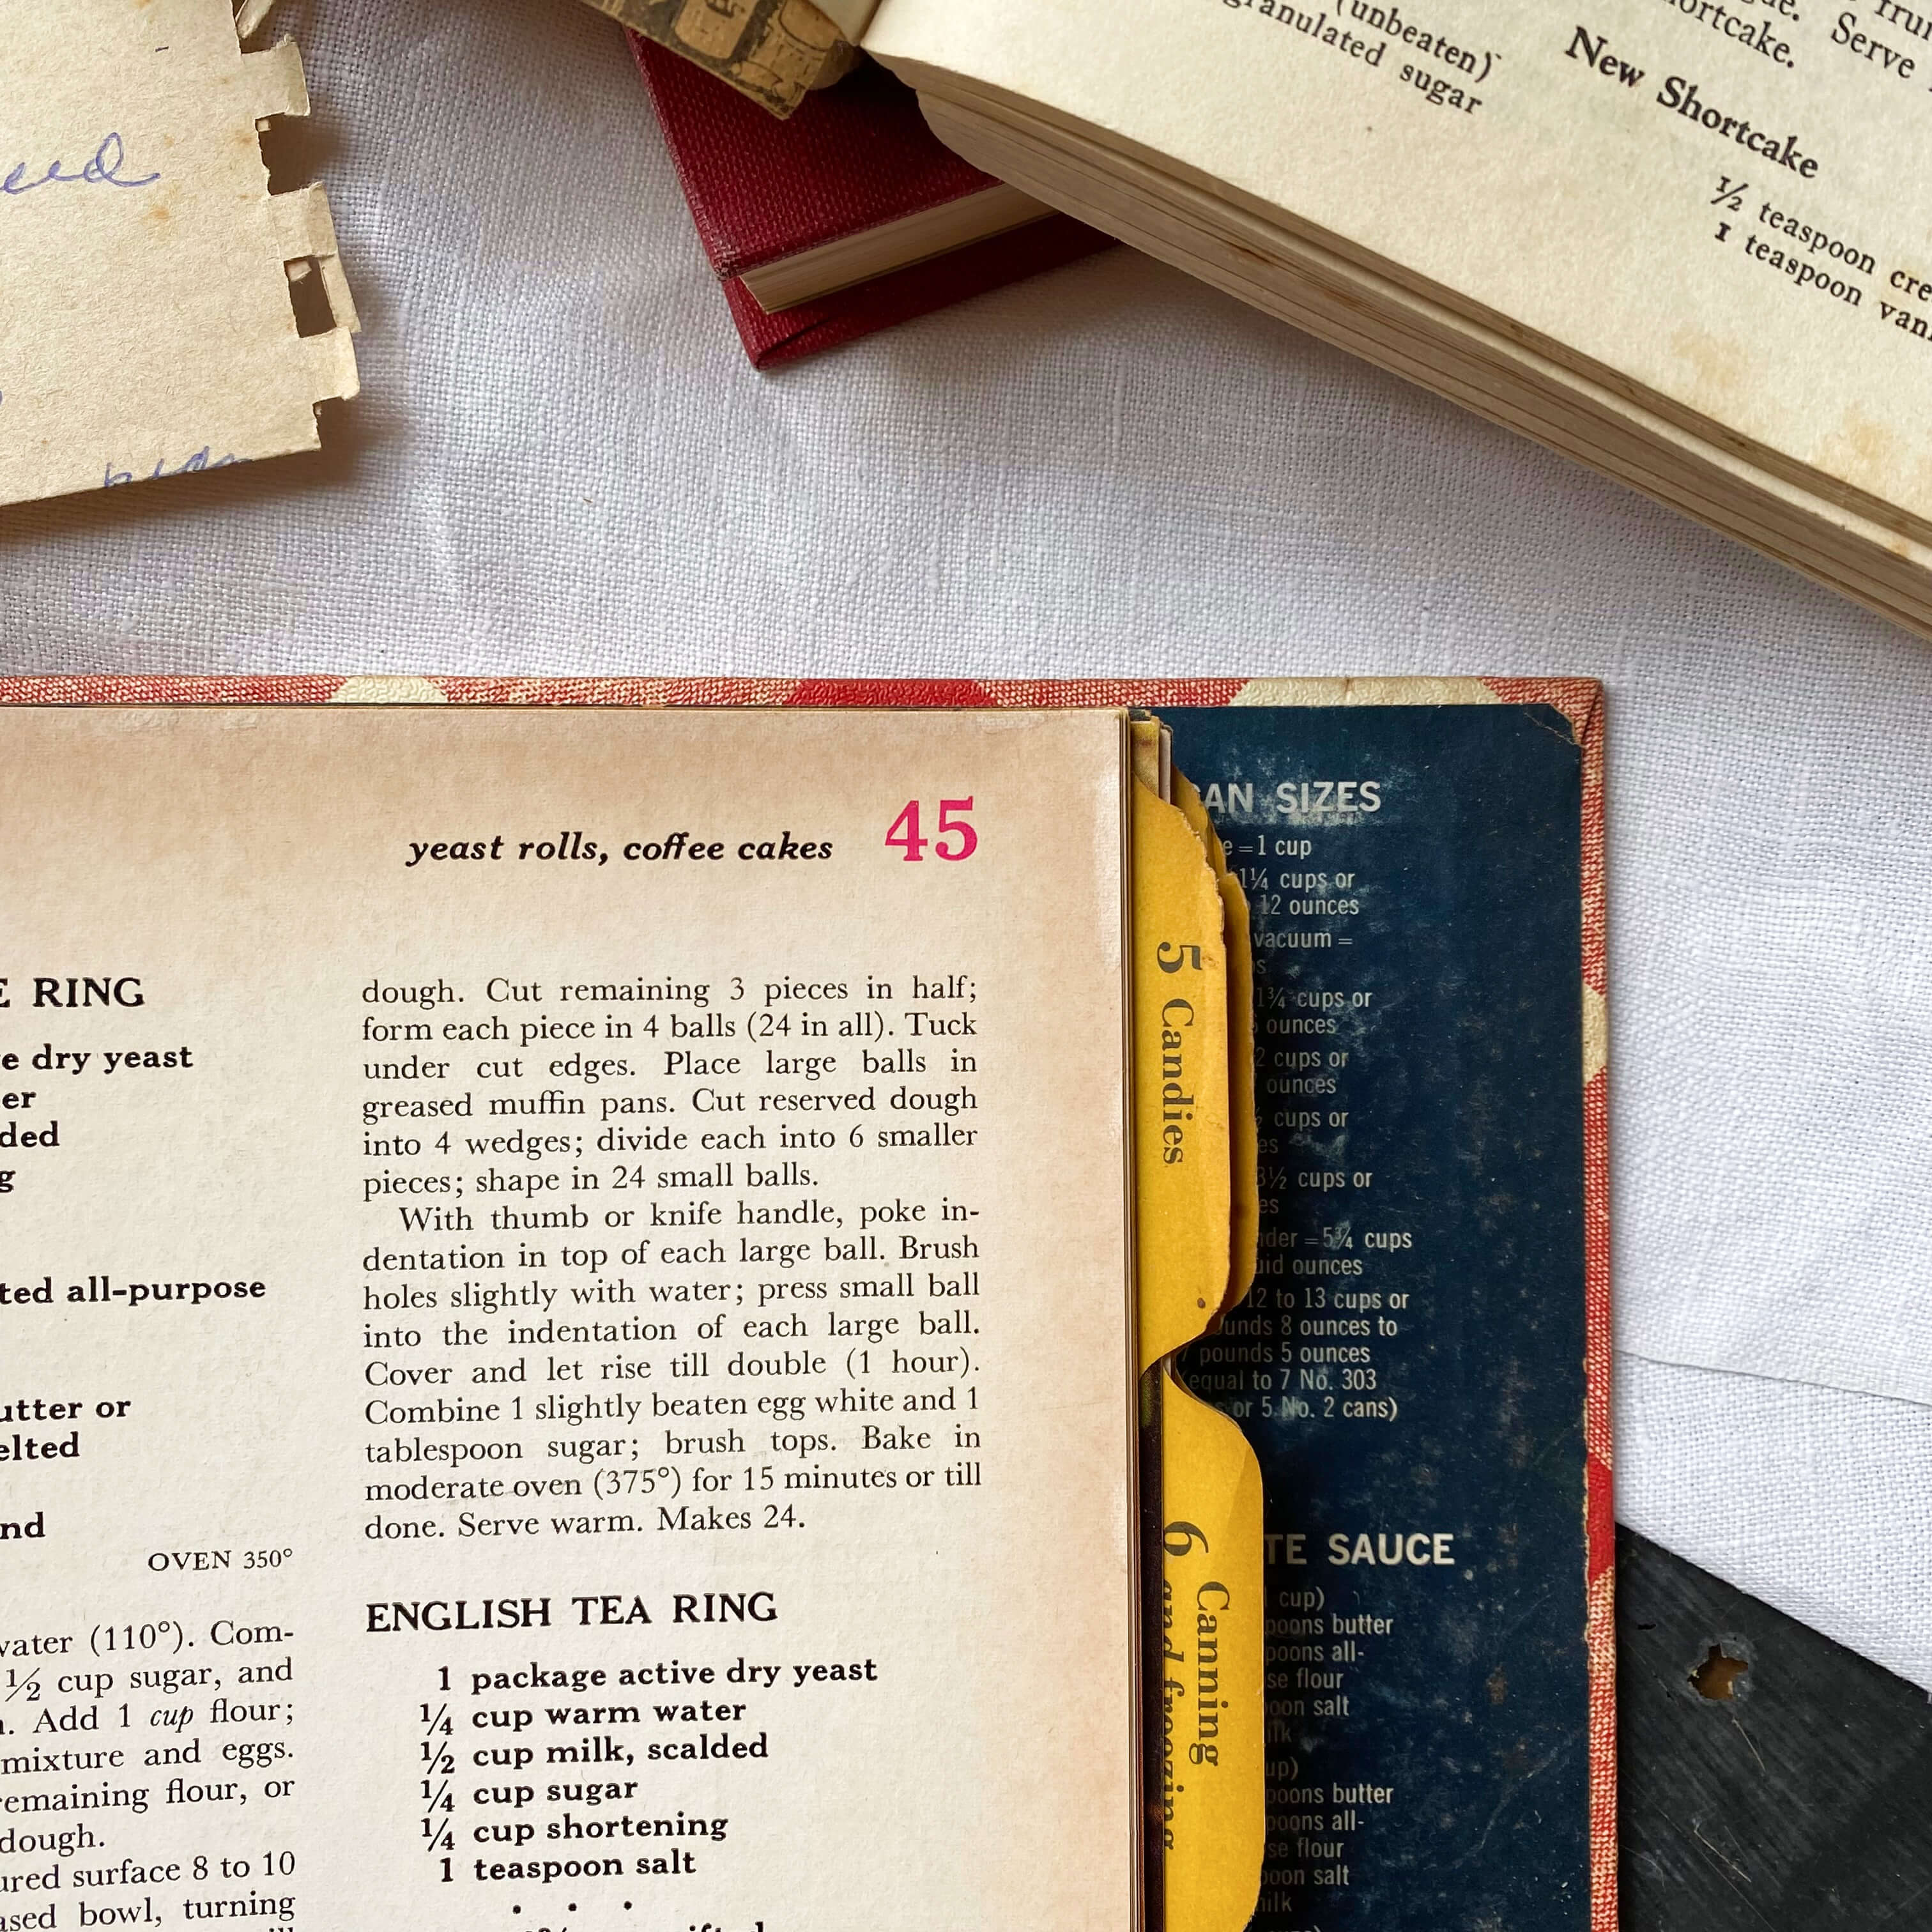 (unbeaten)
granulated sugar
shortcake.
Serve
New Shortcake
½ teaspoon cre
1 teaspoon van
yeast rolls, coffee cakes 45
RING
dry yeast
er
ded
g
ted all-purpose
utter or
elted
nd
OVEN 350°
water (110°). Com-
½ cup sugar, and
. Add 1 cup flour;
mixture and eggs.
remaining flour, or
dough.
ured surface 8 to 10
ased bowl, turning
dough. Cut remaining 3 pieces in half;
form each piece in 4 balls (24 in all). Tuck
under cut edges. Place large balls in
greased muffin pans. Cut reserved dough
into 4 wedges; divide each into 6 smaller
pieces; shape in 24 small balls.
With thumb or knife handle, poke in-
dentation in top of each large ball. Brush
holes slightly with water; press small ball
into the indentation of each large ball.
Cover and let rise till double (1 hour).
Combine 1 slightly beaten egg white and 1
tablespoon sugar; brush tops. Bake in
moderate oven (375°) for 15 minutes or till
done. Serve warm. Makes 24.
ENGLISH TEA RING
1 package active dry yeast
¼ cup warm water
½ cup milk, scalded
¼ cup sugar
¼ cup shortening
1 teaspoon salt
. . .
5 Candies
6 Canning
and freezing
AN SIZES
e = 1 cup
1¼ cups or
12 ounces
vacuum =
s
1¾ cups or
ounces
2 cups or
ounces
cups or
es
3½ cups or
es
nder = 5¾ cups
uid ounces
12 to 13 cups or
unds 8 ounces to
7 pounds 5 ounces
(equal to 7 No. 303
s or 5 No. 2 cans)
TE SAUCE
cup)
poons butter
poons all-
se flour
oon salt
ilk
up)
poons butter
poons all-
se flour
poon salt
milk